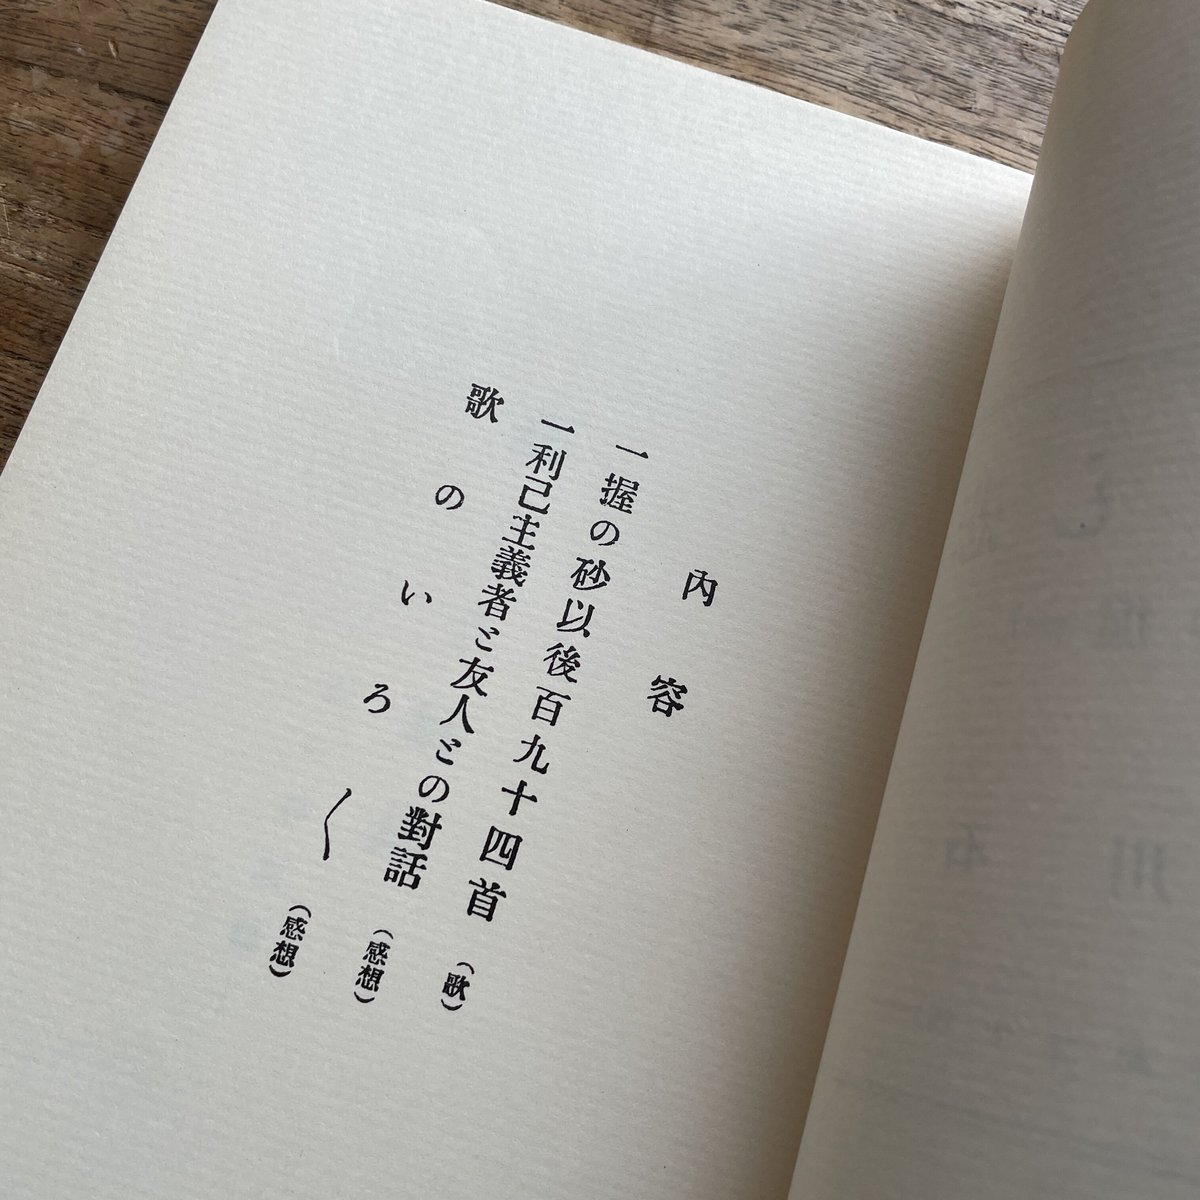 內容
一握の砂以後百九十四首（歌）
一利己主義者と友人との對話（感想）
歌のいろ〳〵（感想）